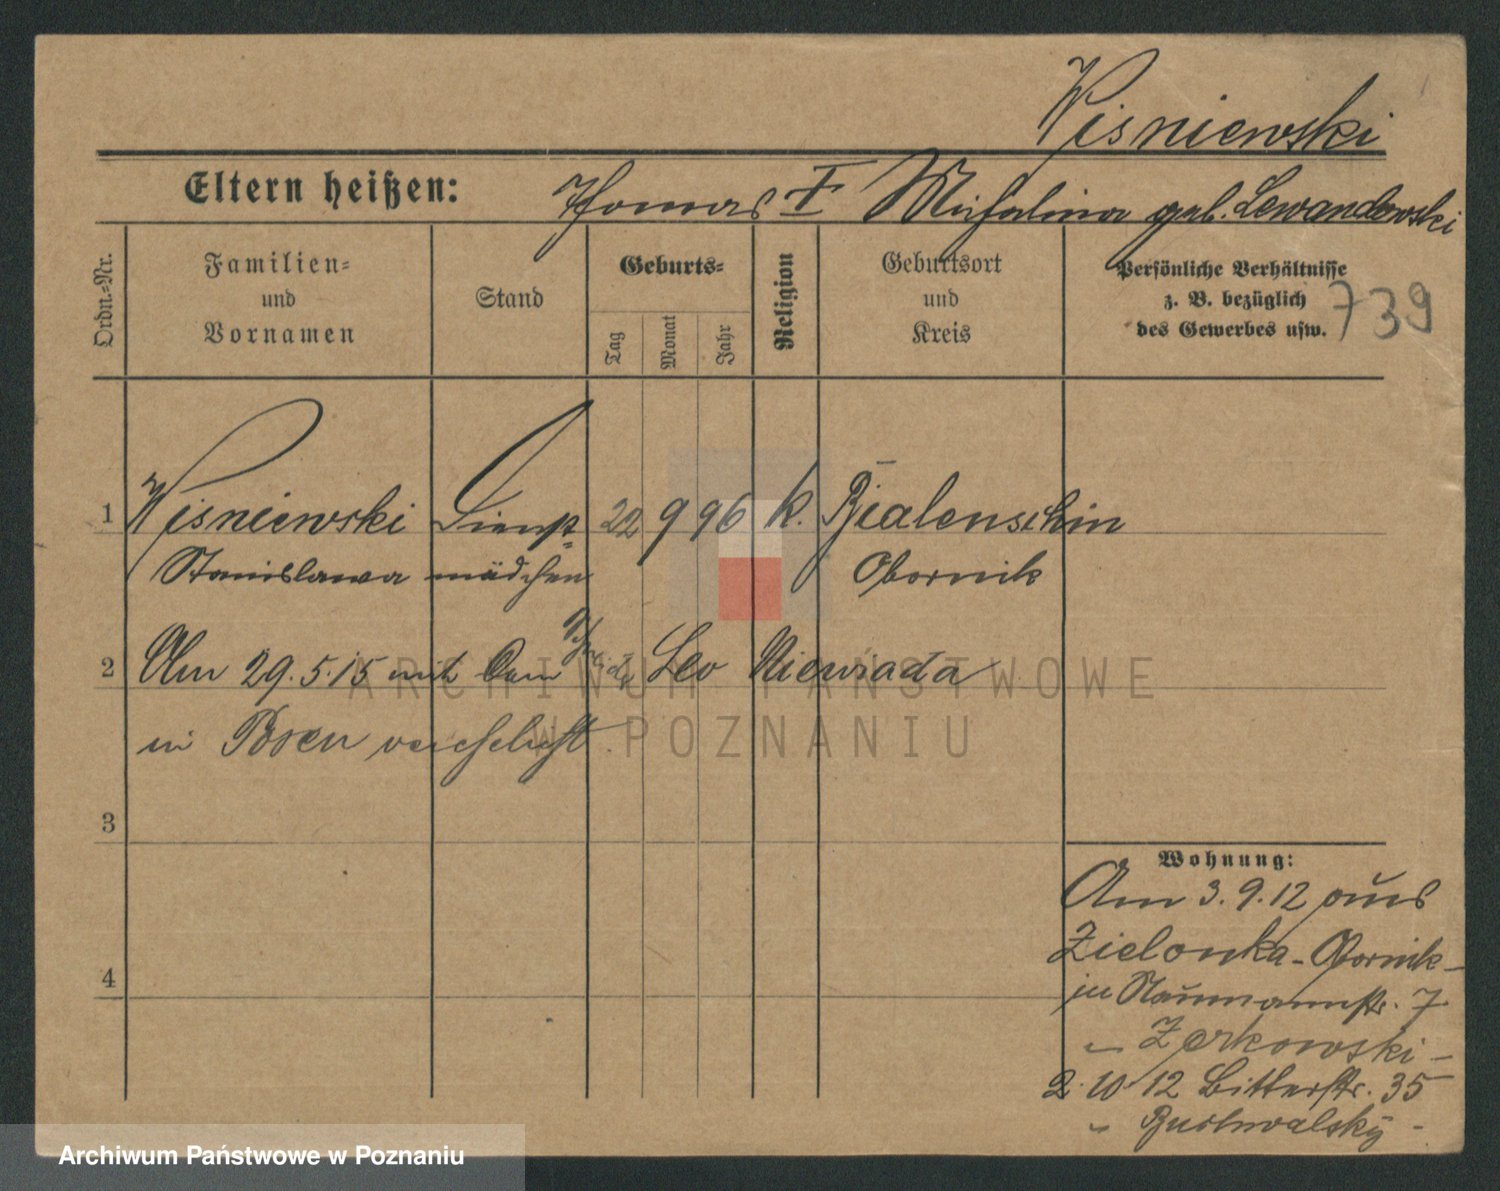 Wisniewski
Eltern heißen: Thomas † Michalina geb. Lewandowski
Ordn.-Nr.
Familien- und Vornamen
Stand
Geburts-
Tag
Monat
Jahr
Religion
Geburtsort und Kreis
Persönliche Verhältnisse
z. B. bezüglich
des Gewerbes usw.
739
1 Wisniewski Dienst- 22 9 96 k. Bialenschin
Stanislawa mädchen Obornik
2 Am 29.5.15 mit dem Leo Niewiada
in Posen verehelicht.
3
4
Wohnung:
Am 3.9.12 aus
Zielonka-Obornik-
in Naumannstr. 7
" Zerkowski -
2.10.12 Bitterstr. 35
"
ARCHIWUM PAŃSTWOWE
W POZNANIU
Archiwum Państwowe w Poznaniu